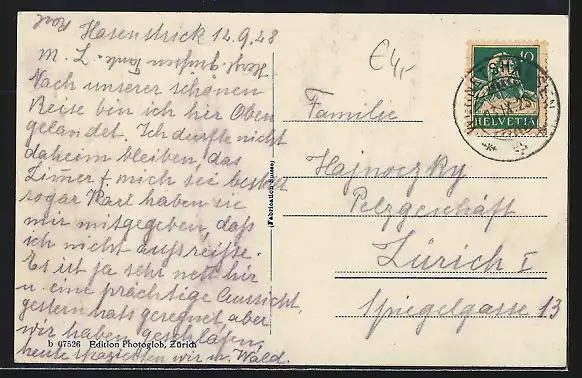 Hasenstrick 12.9.28
M. L.
Nach unserer schönen
Reise bin ich hier Oben
gelandet. Ich durfte nicht
daheim bleiben, das
Zimer f. mich sei bestellt
sogar Karl haben sie
mir mitgegeben, daß
ich nicht ausreiße.
Es ist ja sehr nett hir
u. eine prächtige Aussicht,
gestern hats geregnet, aber
wir haben geschlafen,
heute spazierten wir n. Wald.
Herzl. grüßen Tante
Karl
b 07526 Edition Photoglob, Zürich
(Fabrication suisse)
€4,-
10
HELVETIA
Familie
Hajnoczky
Pelzgeschäft
Zürich I
Spiegelgasse 13